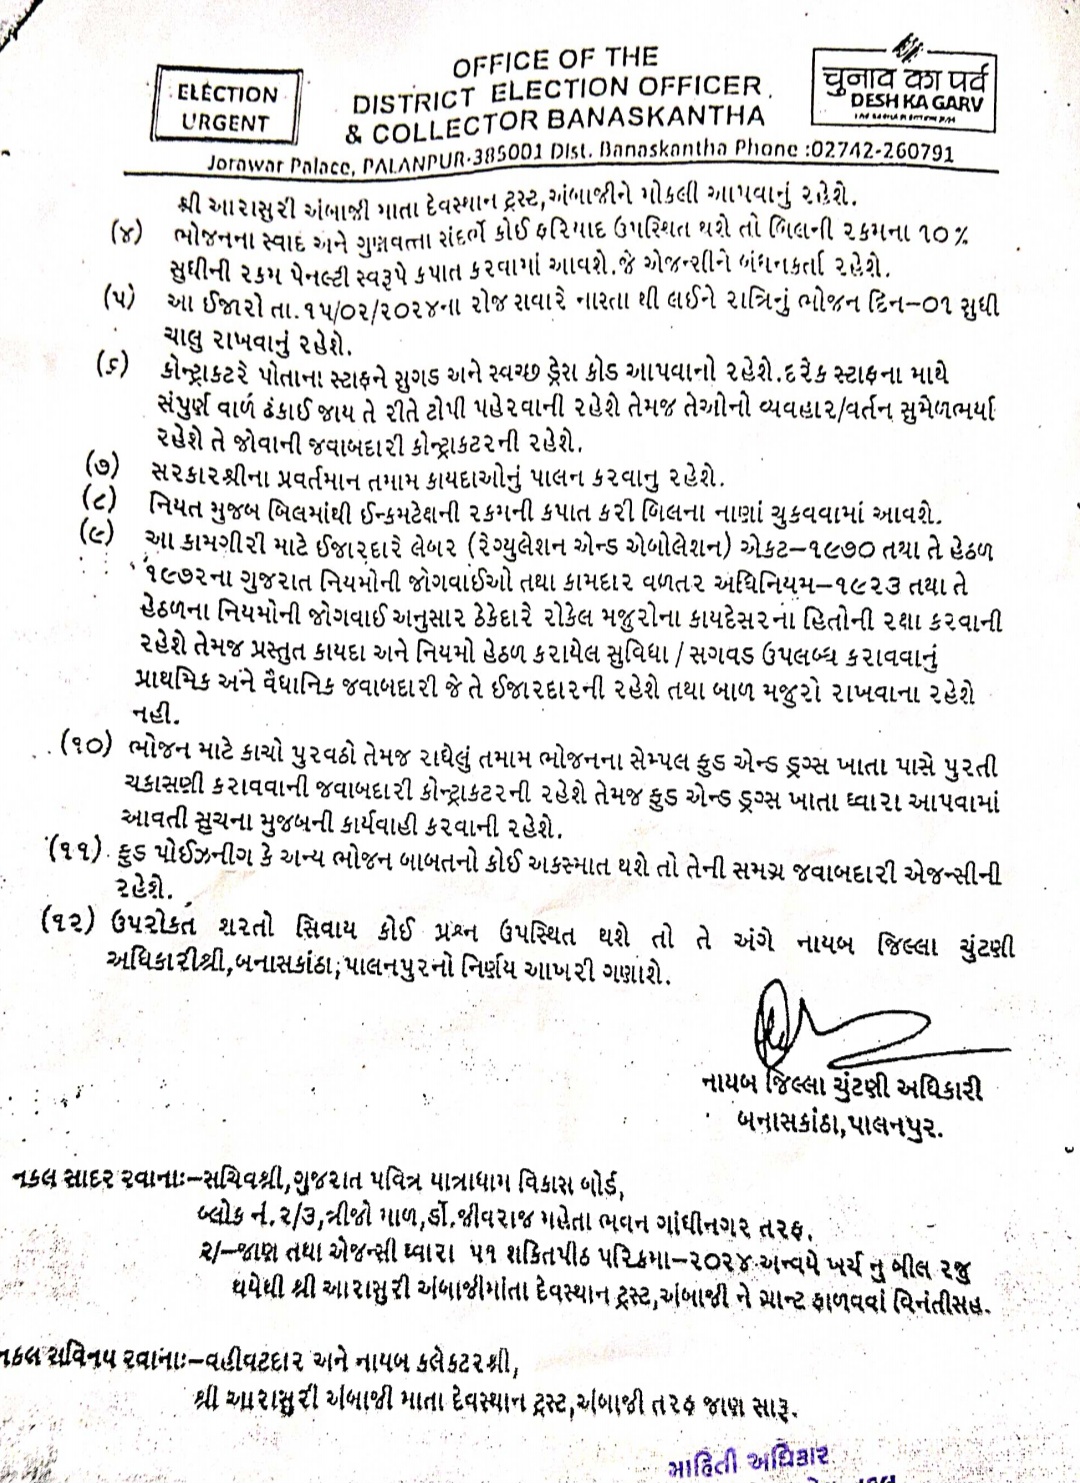 ELECTION
URGENT
OFFICE OF THE
DISTRICT ELECTION OFFICER
& COLLECTOR BANASKANTHA
चुनाव का पर्व
DESH KA GARV
Jorawar Palace, PALANPUR-385001 Dist. Banaskantha Phone :02742-260791
શ્રી આરાસુરી અંબાજી માતા દેવસ્થાન ટ્રસ્ટ,અંબાજીને મોકલી આપવાનું રહેશે.
(૪) ભોજનના સ્વાદ અને ગુણવત્તા સંદર્ભે કોઈ ફરિયાદ ઉપસ્થિત થશે તો બિલની રકમના ૧૦%
સુધીની રકમ પેનલ્ટી સ્વરૂપે કપાત કરવામાં આવશે.જે એજન્સીને બંધનકર્તા રહેશે.
(૫) આ ઈજારો તા.૧૫/૦૨/૨૦૨૪ના રોજ સવારે નાસ્તા થી લઈને રાત્રિનું ભોજન દિન-૦૧ સુધી
ચાલુ રાખવાનું રહેશે.
(૬) કોન્ટ્રાકટરે પોતાના સ્ટાફને સુગડ અને સ્વચ્છ ડ્રેસ કોડ આપવાનો રહેશે.દરેક સ્ટાફના માથે
સંપુર્ણ વાળ ઢંકાઈ જાય તે રીતે ટોપી પહેરવાની રહેશે તેમજ તેઓનો વ્યવહાર/વર્તન સુમેળભર્યા
રહેશે તે જોવાની જવાબદારી કોન્ટ્રાકટરની રહેશે.
(૭) સરકારશ્રીના પ્રવર્તમાન તમામ કાયદાઓનું પાલન કરવાનુ રહેશે.
(૮) નિયત મુજબ બિલમાંથી ઈન્કમટેક્ષની રકમની કપાત કરી બિલના નાણાં ચુકવવામાં આવશે.
(૯) આ કામગીરી માટે ઈજારદારે લેબર (રેગ્યુલેશન એન્ડ એબોલેશન) એકટ-૧૯૭૦ તથા તે હેઠળ
૧૯૭૨ના ગુજરાત નિયમોની જોગવાઈઓ તથા કામદાર વળતર અધિનિયમ-૧૯૨૩ તથા તે
હેઠળના નિયમોની જોગવાઈ અનુસાર ઠેકેદારે રોકેલ મજુરોના કાયદેસરના હિતોની રક્ષા કરવાની
રહેશે તેમજ પ્રસ્તુત કાયદા અને નિયમો હેઠળ કરાયેલ સુવિધા / સગવડ ઉપલબ્ધ કરાવવાનું
પ્રાથમિક અને વૈધાનિક જવાબદારી જે તે ઈજારદારની રહેશે તથા બાળ મજુરો રાખવાના રહેશે
નહી.
(૧૦) ભોજન માટે કાચો પુરવઠો તેમજ રાધેલું તમામ ભોજનના સેમ્પલ ફુડ એન્ડ ડ્રગ્સ ખાતા પાસે પુરતી
ચકાસણી કરાવવાની જવાબદારી કોન્ટ્રાકટરની રહેશે તેમજ ફુડ એન્ડ ડ્રગ્સ ખાતા ધ્વારા આપવામાં
આવતી સુચના મુજબની કાર્યવાહી કરવાની રહેશે.
(૧૧) ફુડ પોઈઝનીગ કે અન્ય ભોજન બાબતનો કોઈ અકસ્માત થશે તો તેની સમગ્ર જવાબદારી એજન્સીની
રહેશે.
(૧૨) ઉપરોકત શરતો સિવાય કોઈ પ્રશ્ન ઉપસ્થિત થશે તો તે અંગે નાયબ જિલ્લા ચુંટણી
અધિકારીશ્રી,બનાસકાંઠા,પાલનપુરનો નિર્ણય આખરી ગણાશે.
નાયબ જિલ્લા ચુંટણી અધિકારી
બનાસકાંઠા,પાલનપુર.
નકલ સાદર રવાનાઃ-સચિવશ્રી,ગુજરાત પવિત્ર યાત્રાધામ વિકાસ બોર્ડ,
બ્લોક નં.૨/૩,ત્રીજો માળ,ર્ડો.જીવરાજ મહેતા ભવન ગાંધીનગર તરફ.
૨/-જાણ તથા એજન્સી ધ્વારા ૫૧ શકિતપીઠ પરિક્રમા-૨૦૨૪ અન્વયે ખર્ચ નુ બીલ રજુ
થયેથી શ્રી આરાસુરી અંબાજીમાંતા દેવસ્થાન ટ્રસ્ટ,અંબાજી ને ગ્રાન્ટ ફાળવવાં વિનંતીસહ.
નકલ સવિનય રવાનાઃ-વહીવટદાર અને નાયબ કલેકટરશ્રી,
શ્રી આરાસુરી અંબાજી માતા દેવસ્થાન ટ્રસ્ટ,અંબાજી તરફ જાણ સારૂ.
માહિતી અધિકાર